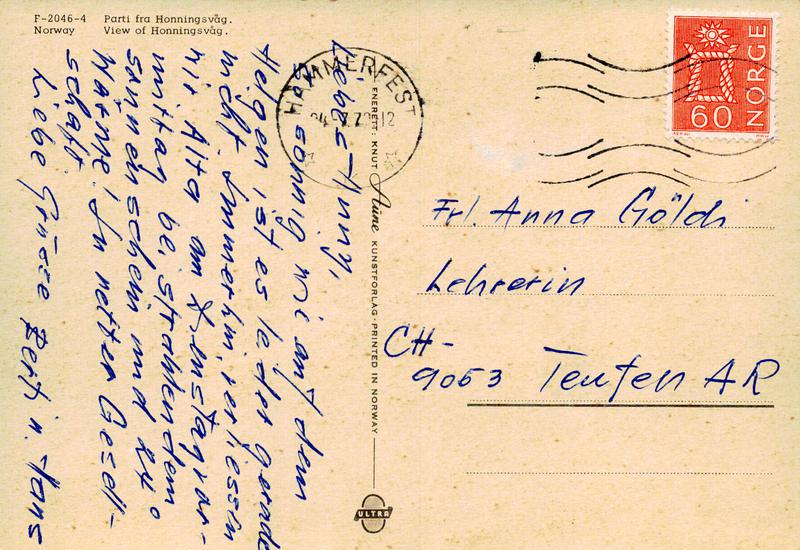 F-2046-4 Parti fra Honningsvåg.
Norway View of Honningsvåg.
Liebe Anny,
so sonnig wie auf dem
Helgen ist es leider gerade
nicht. Immerhin verliessen
wir Alta am Dienstagvor-
mittag bei strahlendem
Sonnenschein und 24°
Wärme! In netter Gesell-
schaft
Liebe Grüsse Berti u. Hans
HAMMERFEST
12
ENERETT: KNUT Aune KUNSTFORLAG · PRINTED IN NORWAY
ULTRA
NORGE
60
Frl. Anna Göldi
Lehrerin
CH-
9053 Teufen AR